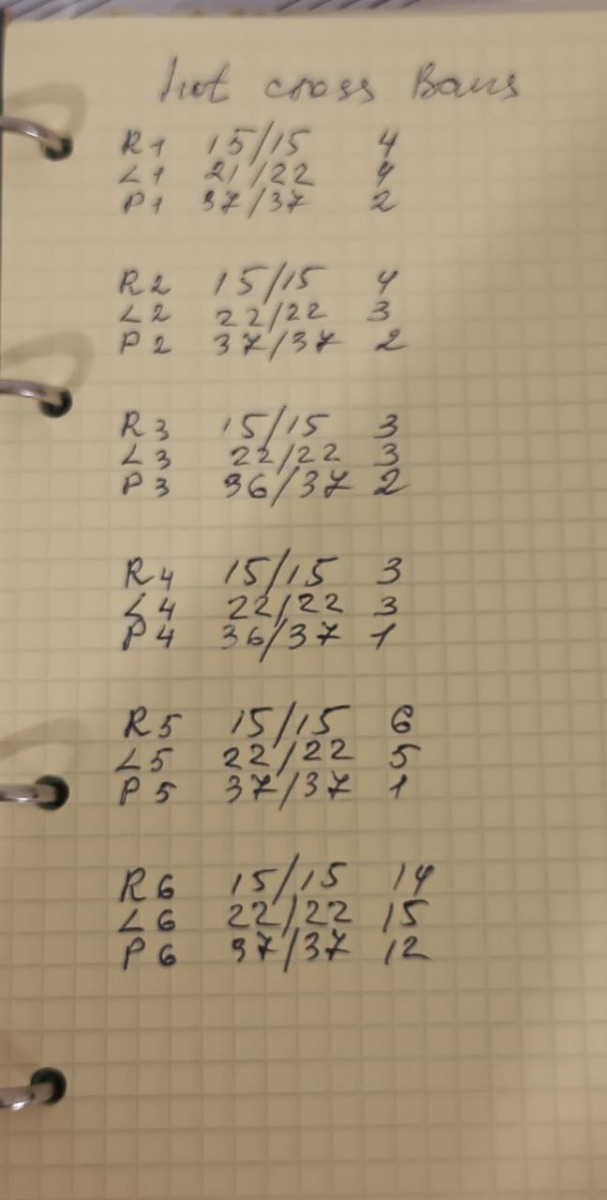 hot cross Bans
R1 15/15 4
L1 21/22 4
P1 37/37 2
R2 15/15 4
L2 22/22 3
P2 37/37 2
R3 15/15 3
L3 22/22 3
P3 36/37 2
R4 15/15 3
L4 22/22 3
P4 36/37 1
R5 15/15 6
L5 22/22 5
P5 37/37 1
R6 15/15 14
L6 22/22 15
P6 37/37 12